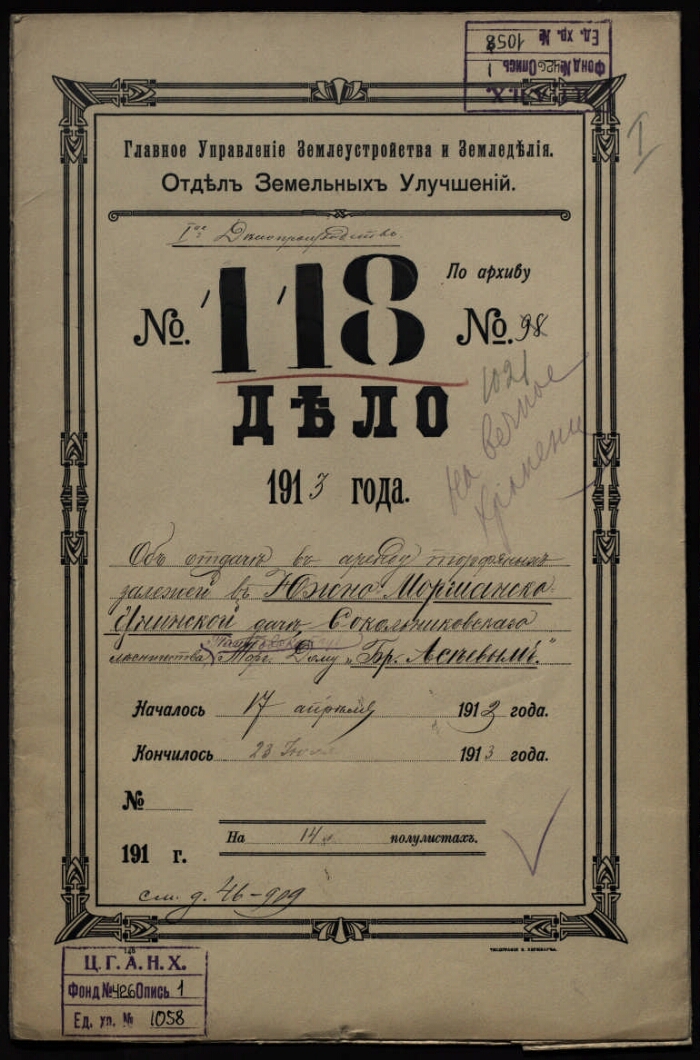 Ед. хр. № 1058
Фонд № 426 Опись 1
Ц.Г.А.Н.Х.
I
Главное Управленіе Землеустройства и Земледѣлія.
Отдѣлъ Земельныхъ Улучшеній.
Iое Делопроизводство.
По архиву
№. 118 №. 98
1021
на вечное
хранение
ДѢЛО
1913 года.
Объ отдачѣ въ аренду торфяныхъ
залежей въ Южно-Моршанско-
Унинской дачѣ Сокольниковскаго
лѣсничества Торг. Дому „Бр. Асѣевымъ."
Началось 17 апрѣля 1913 года.
Кончилось 23 Іюля 1913 года.
№
На 14 полулистахъ.
191 г.
см. д. 46-909
Ц.Г.А.Н.Х.
Фонд № 426 Опись 1
Ед. хр. № 1058